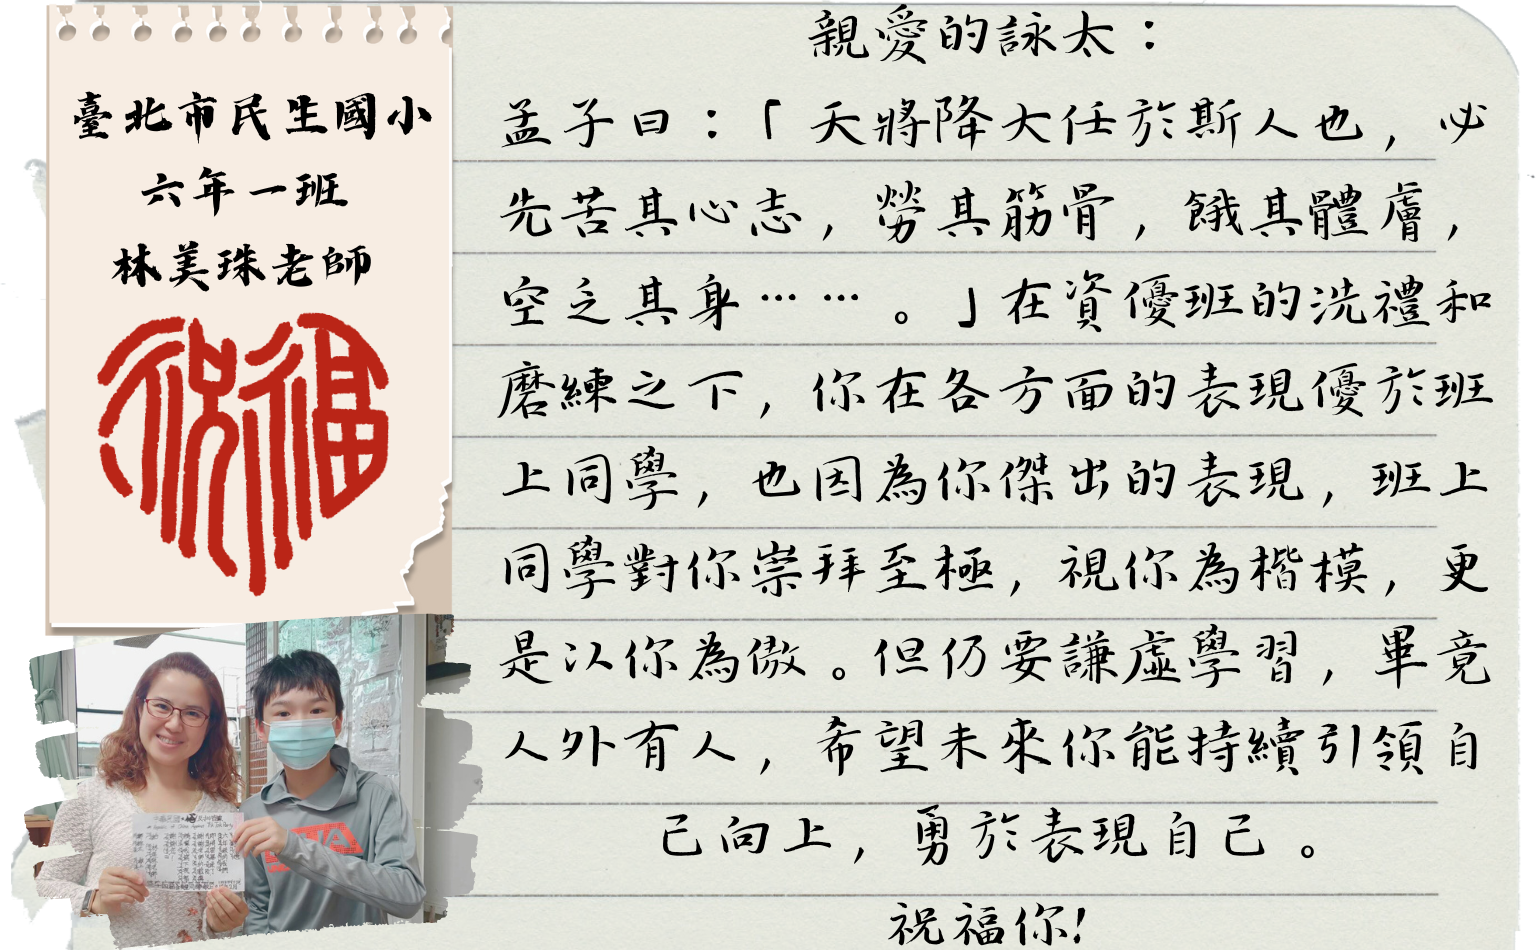 臺北市民生國小
六年一班
林美珠老師
祝福
親愛的詠太：
孟子曰：「天將降大任於斯人也，必
先苦其心志，勞其筋骨，餓其體膚，
空乏其身……。」在資優班的洗禮和
磨練之下，你在各方面的表現優於班
上同學，也因為你傑出的表現，班上
同學對你崇拜至極，視你為楷模，更
是以你為傲。但仍要謙虛學習，畢竟
人外有人，希望未來你能持續引領自
己向上，勇於表現自己。
祝福你!